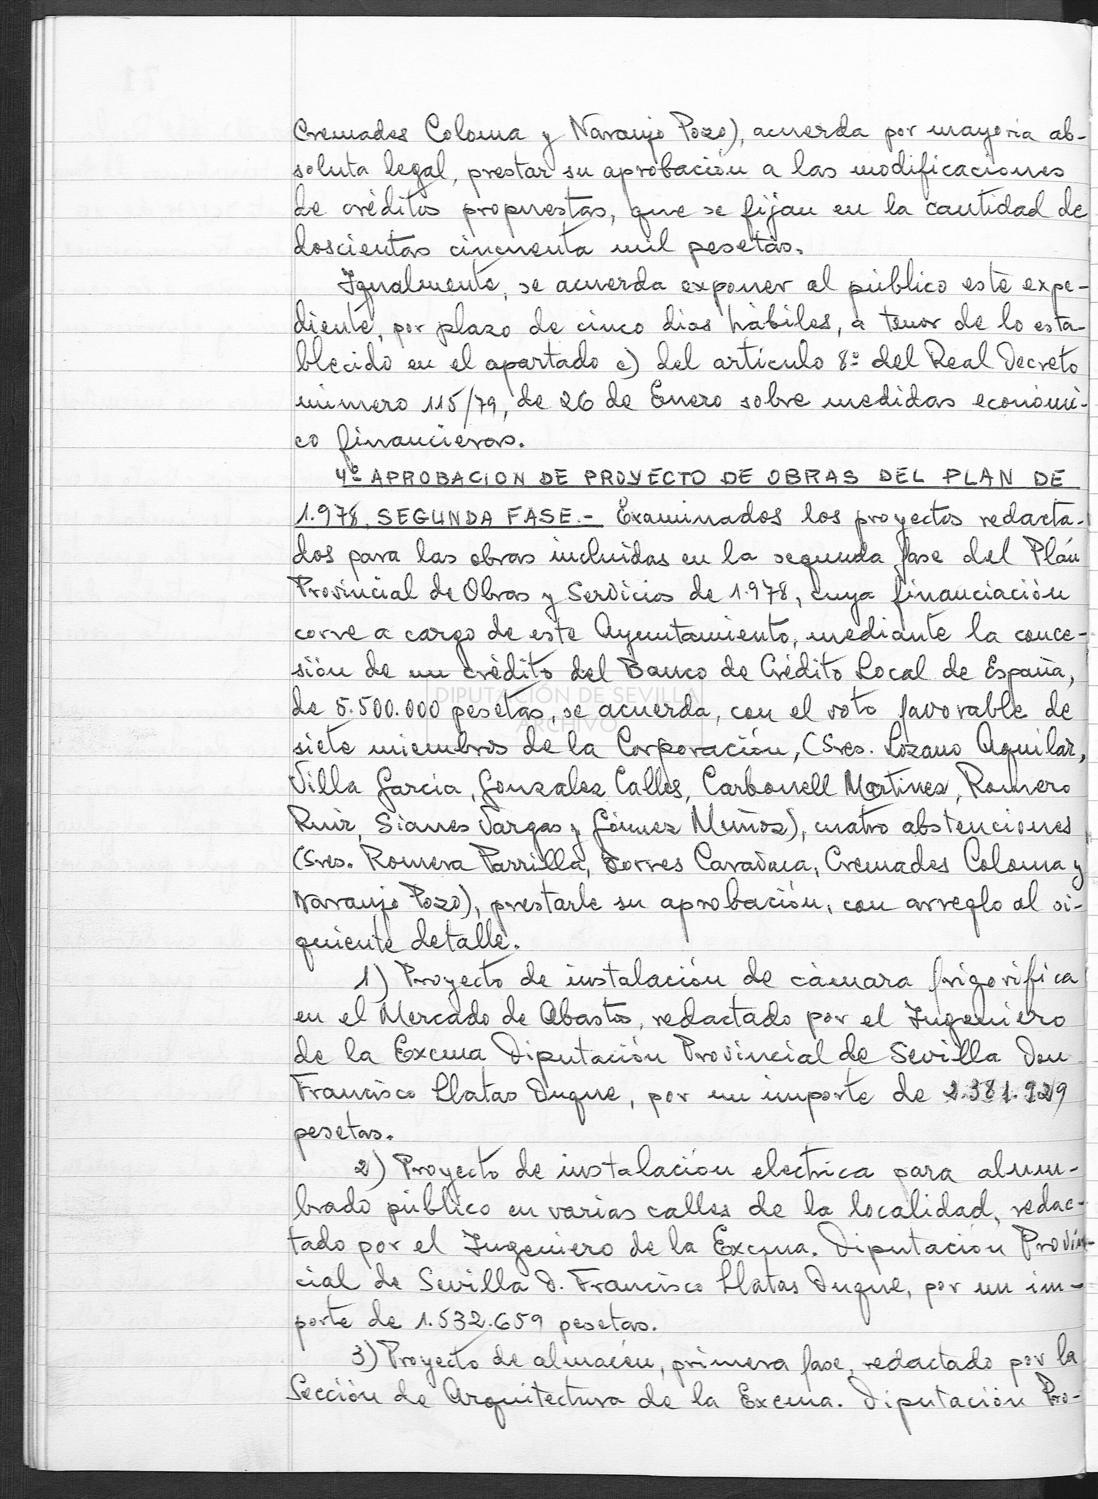 Cremades Coloma y Naranjo Pozo), acuerda por mayoria ab-
soluta legal, prestar su aprobación a las modificaciones
de créditos propuestas, que se fijan en la cantidad de
doscientas cincuenta mil pesetas.
Igualmente, se acuerda exponer al público este expe-
diente, por plazo de cinco dias hábiles, a tenor de lo esta-
blecido en el apartado e) del articulo 8º del Real Decreto
número 115/79, de 26 de Enero sobre medidas económi-
co financieras.
4º APROBACION DE PROYECTO DE OBRAS DEL PLAN DE
1.978, SEGUNDA FASE.- Examinados los proyectos redacta-
dos para las obras incluidas en la segunda fase del Plán
Provincial de Obras y Servicios de 1.978, cuya financiación
corre a cargo de este Ayuntamiento, mediante la conce-
sión de un crédito del Banco de Crédito Local de España,
de 5.500.000 pesetas, se acuerda, con el voto favorable de
siete miembros de la Corporación, (Sres. Lozano Aguilar,
Villa Garcia, Gonzalez Calles, Carbonell Martinez, Romero
Ruiz, Sianes Vargas y Gómez Muñoz), cuatro abstenciones
(Sres. Romera Parrilla, Torres Caravaca, Cremades Coloma y
Naranjo Pozo), prestarle su aprobación, con arreglo al si-
guiente detalle.
1) Proyecto de instalación de cámara frigorifica
en el Mercado de Abastos, redactado por el Ingeniero
de la Excma Diputación Provincial de Sevilla Don
Francisco Llatas Duque, por un importe de 2.381.929
pesetas.
2) Proyecto de instalación electrica para alum-
brado público en varias calles de la localidad, redac-
tado por el Ingeniero de la Excma. Diputación Provin-
cial de Sevilla D. Francisco Llatas Duque, por un im-
porte de 1.532.659 pesetas.
3) Proyecto de almacén, primera fase, redactado por la
Sección de Arquitectura de la Excma. Diputación Pro-
DIPUTACIÓN DE SEVILLA
ARCHIVO